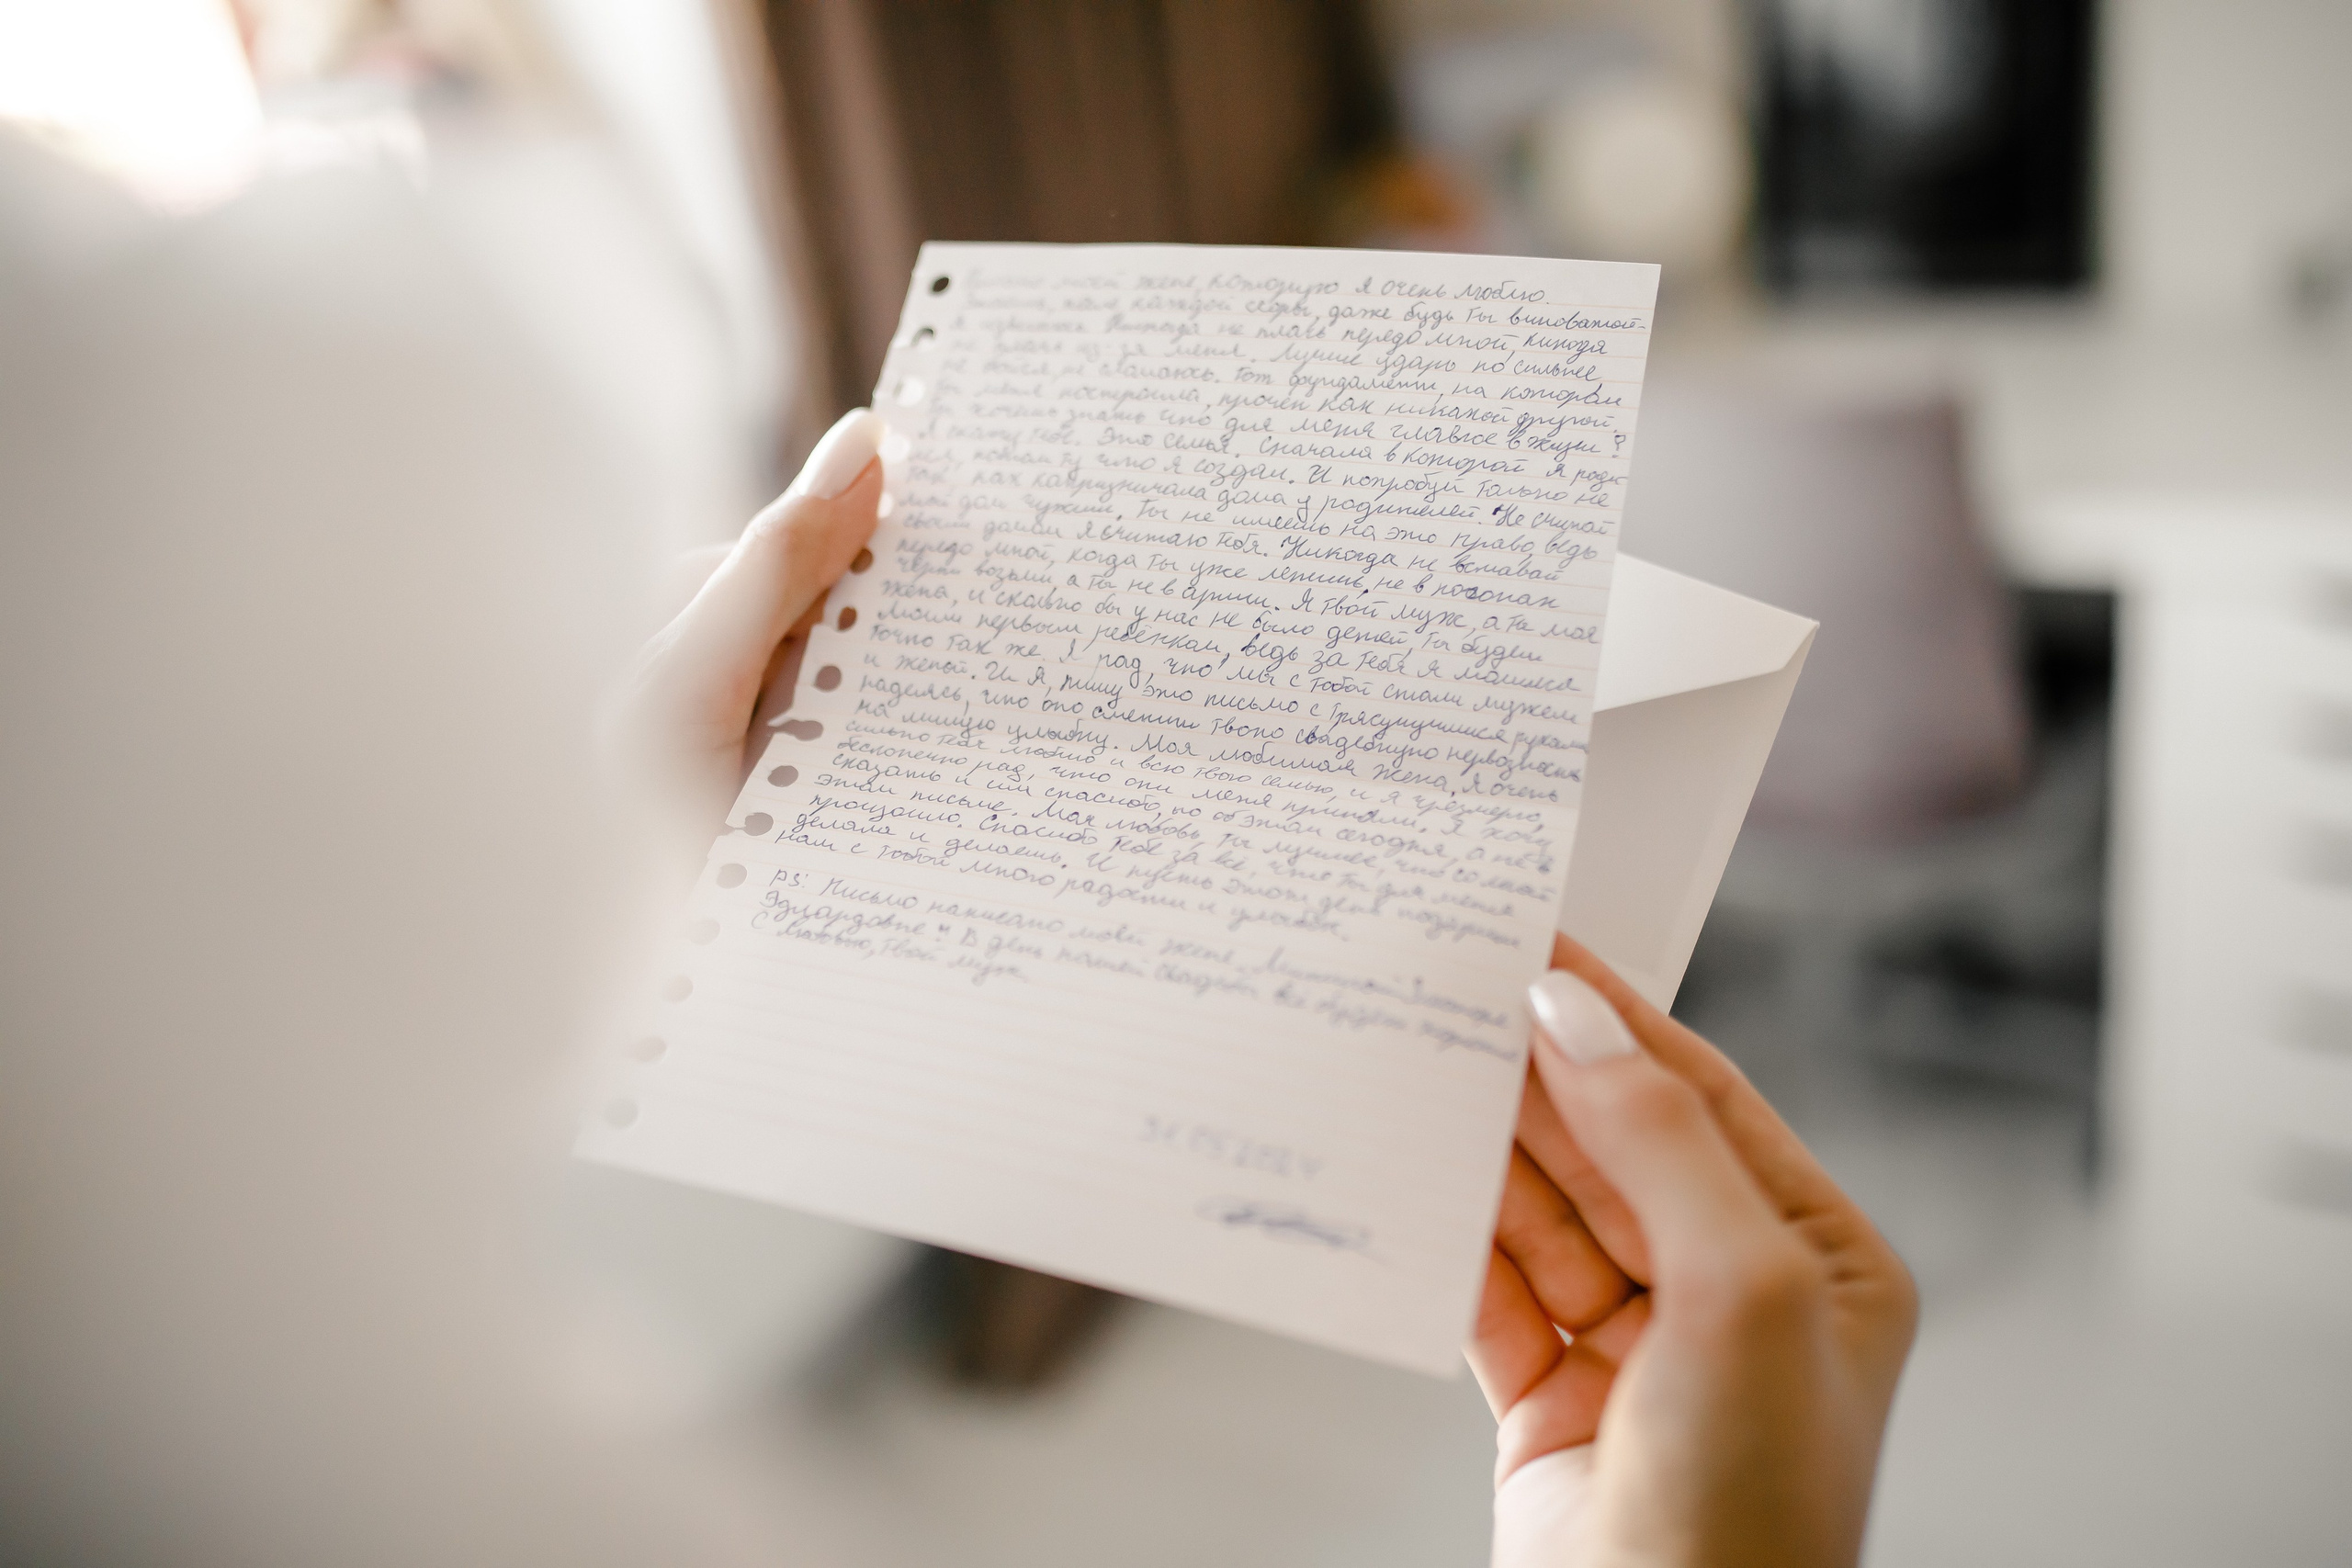 моей жене, которую я очень люблю.
после каждой ссоры, даже будь ты виноватой-
я извинюсь. Никогда не плачь передо мной, никогда
не плачь из-за меня. Лучше ударь по сильнее,
не сломаюсь. Тот фундамент, на котором
ты меня построила, прочен как никакой другой.
Ты хочешь знать что для меня главное в жизни?
Я скажу тебе. Это семья. Сначала в которой я роди
лся, потом ту что я создал. И попробуй только не
так, как капризничала дома у родителей. Не считай
мой дом чужим. Ты не имеешь на это право, ведь
своим домом я считаю тебя. Никогда не вставай
передо мной, когда ты уже лежишь, не в погонах
черт возьми, а ты не в армии. Я твой муж, а ты моя
жена, и сколько бы у нас не было детей, ты будешь
моим первым ребёнком, ведь за тебя я молился
точно так же. Я рад, что мы с тобой стали мужем
и женой. И я, пишу это письмо с трясущимися руками
надеясь, что оно сменит твою свадебную нервозность
на милую улыбку. Моя любимая жена, я очень
сильно тебя люблю и всю твою семью, и я чрезмерно,
бесконечно рад, что они меня приняли. Я хочу
сказать и им спасибо, но об этом сегодня, а не в
этом письме. Моя любовь, ты лучшее, что со мной
произошло. Спасибо тебе за всё, что ты для меня
делала и делаешь. И пусть этот день подарит
нам с тобой много радости и улыбок.
ps: Письмо написано моей жене,
Эдуардовне В день нашей свадьбы Всё будет хорошо
С любовью, твой муж